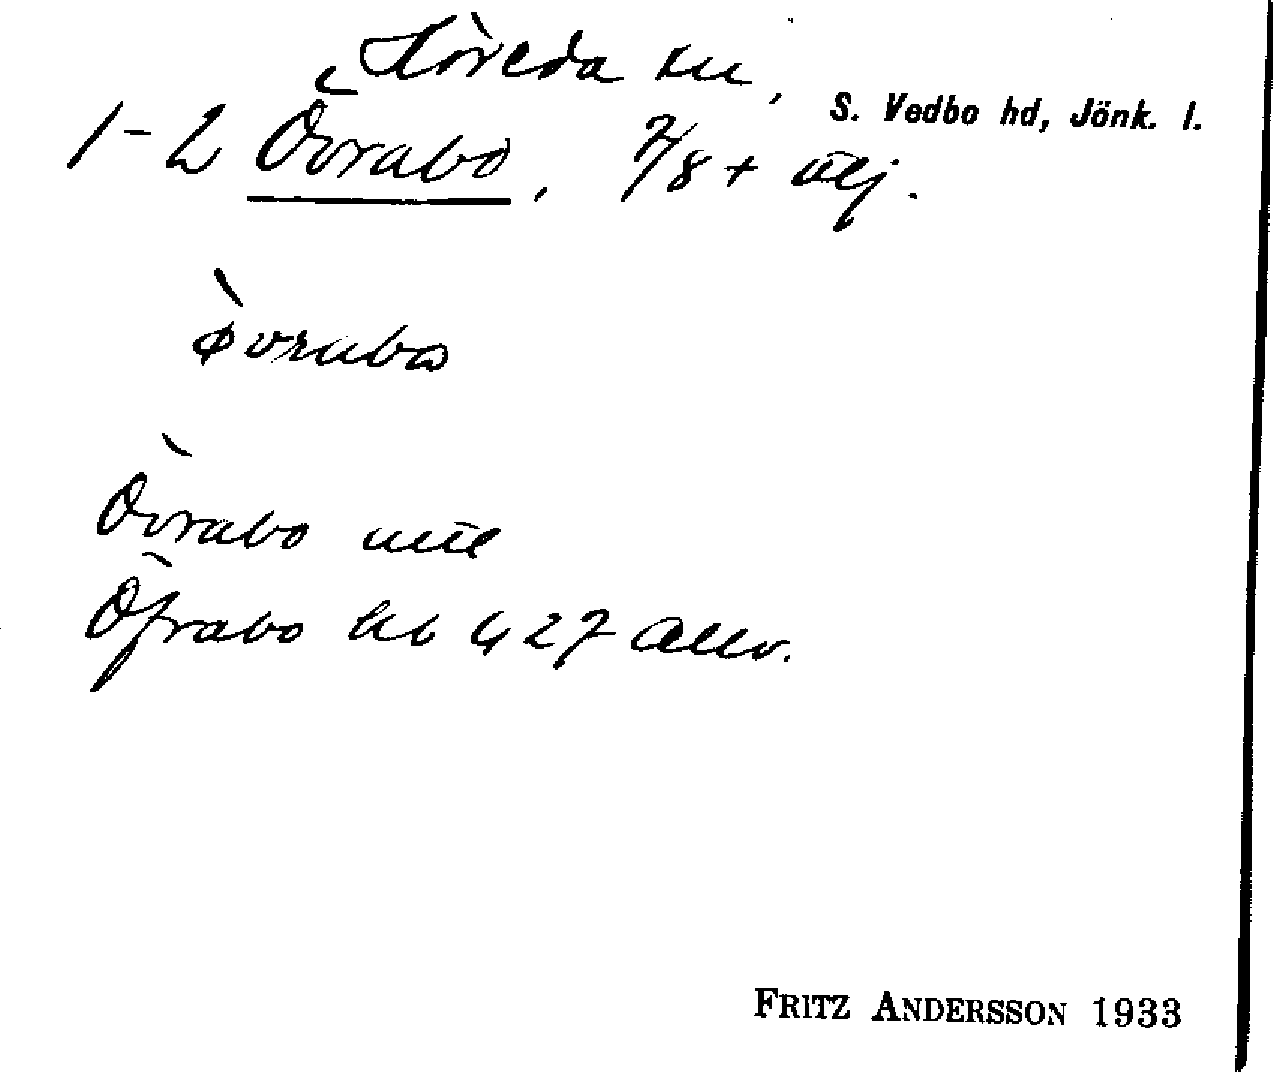 Höreda sn, S. Vedbo hd, Jönk. l.
1-2 Övrabo, 7/8 + älj.
övrabo
Övrabo
Öfrabo hb 427 allv.
FRITZ ANDERSSON 1933